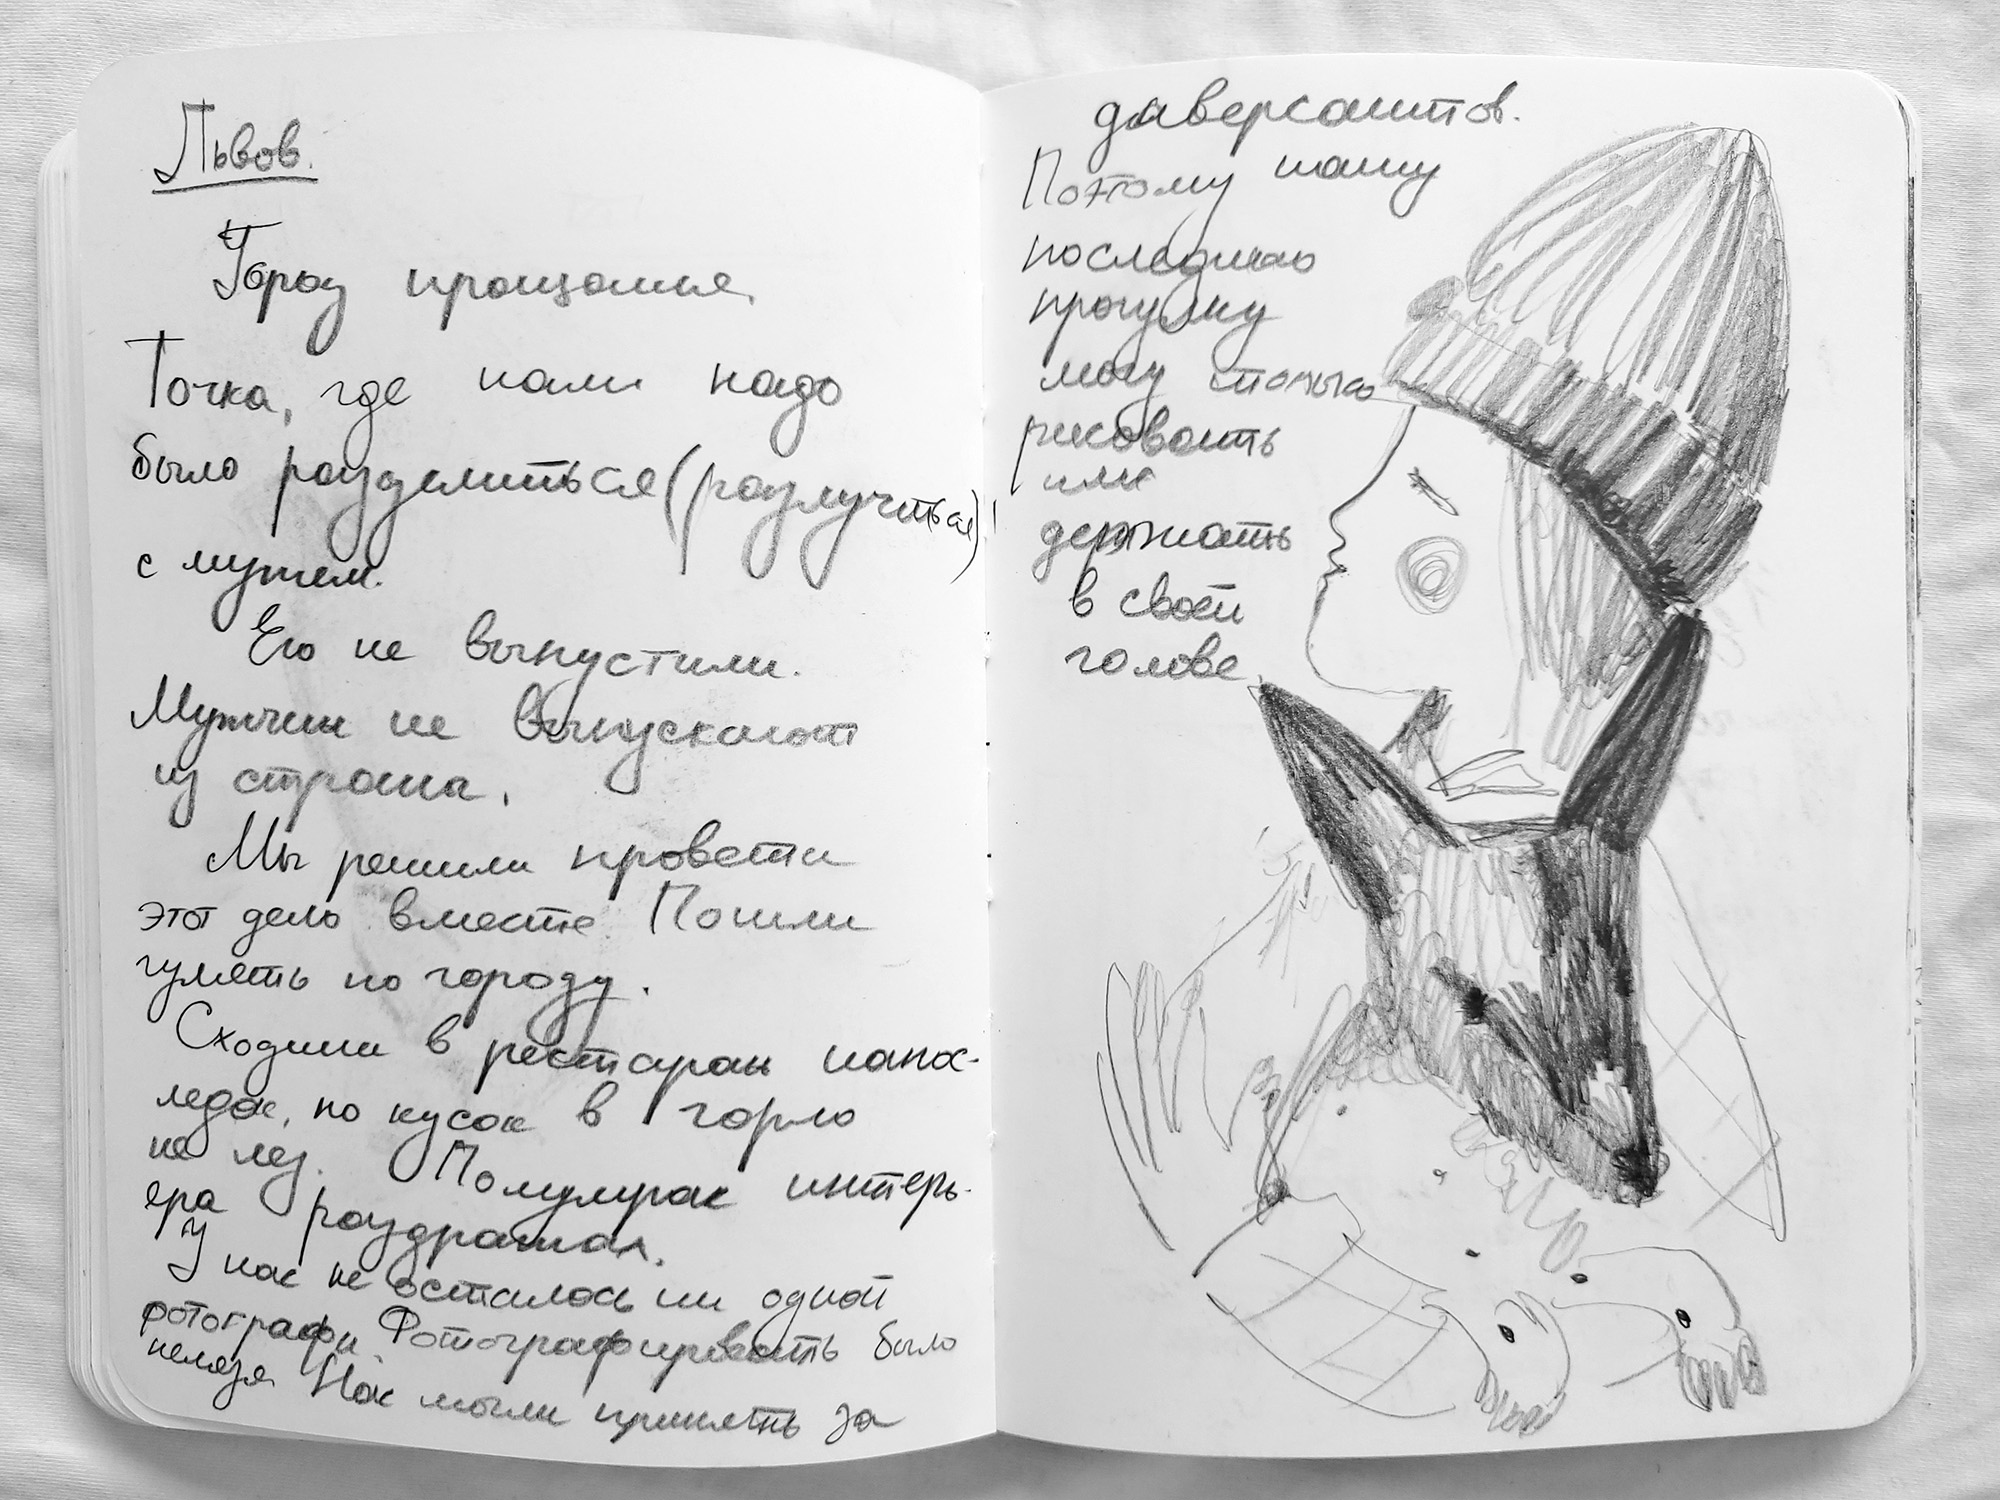 Львов.
Город прощания.
Точка, где нам надо
было разделиться (разлучиться)
с мужем.
Его не выпустили.
Мужчин не выпускают
из страны.
Мы решили провести
этот день вместе. Пошли
гулять по городу.
Сходили в ресторан напос-
ледок, но кусок в горло
не лез. Полумрак интерь-
ера раздражал.
У нас не осталось ни одной
фотографи. Фотографировать было
нельзя. Нас могли принять за
диверсантов.
Поэтому нашу
последнюю
прогулку
могу только
рисовать
или
держать
в своей
голове